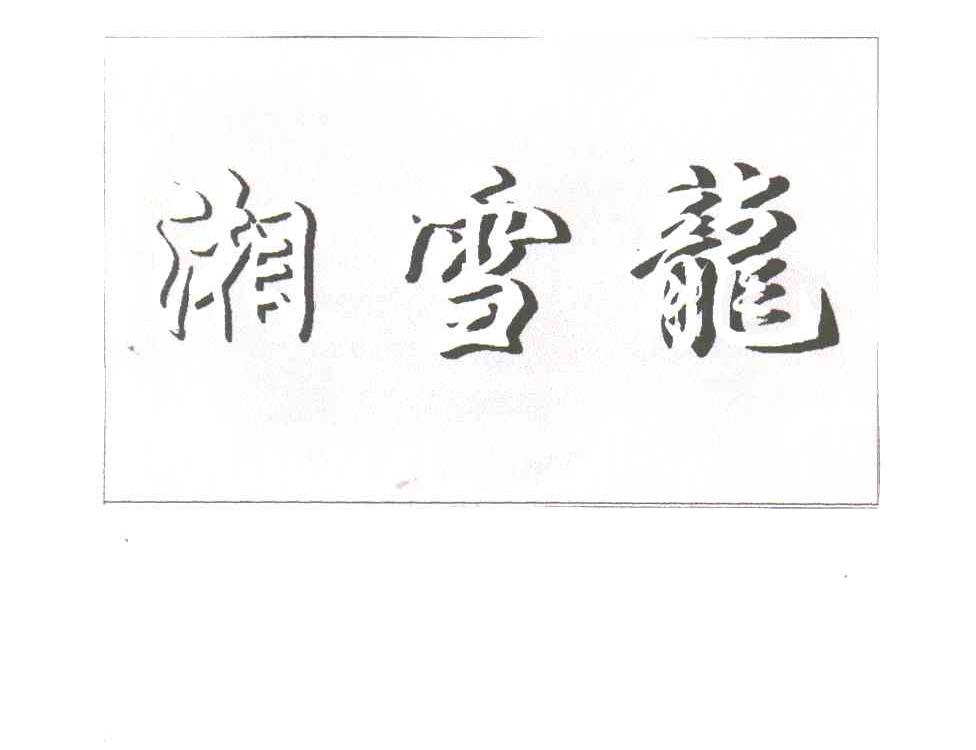 湘雪龍